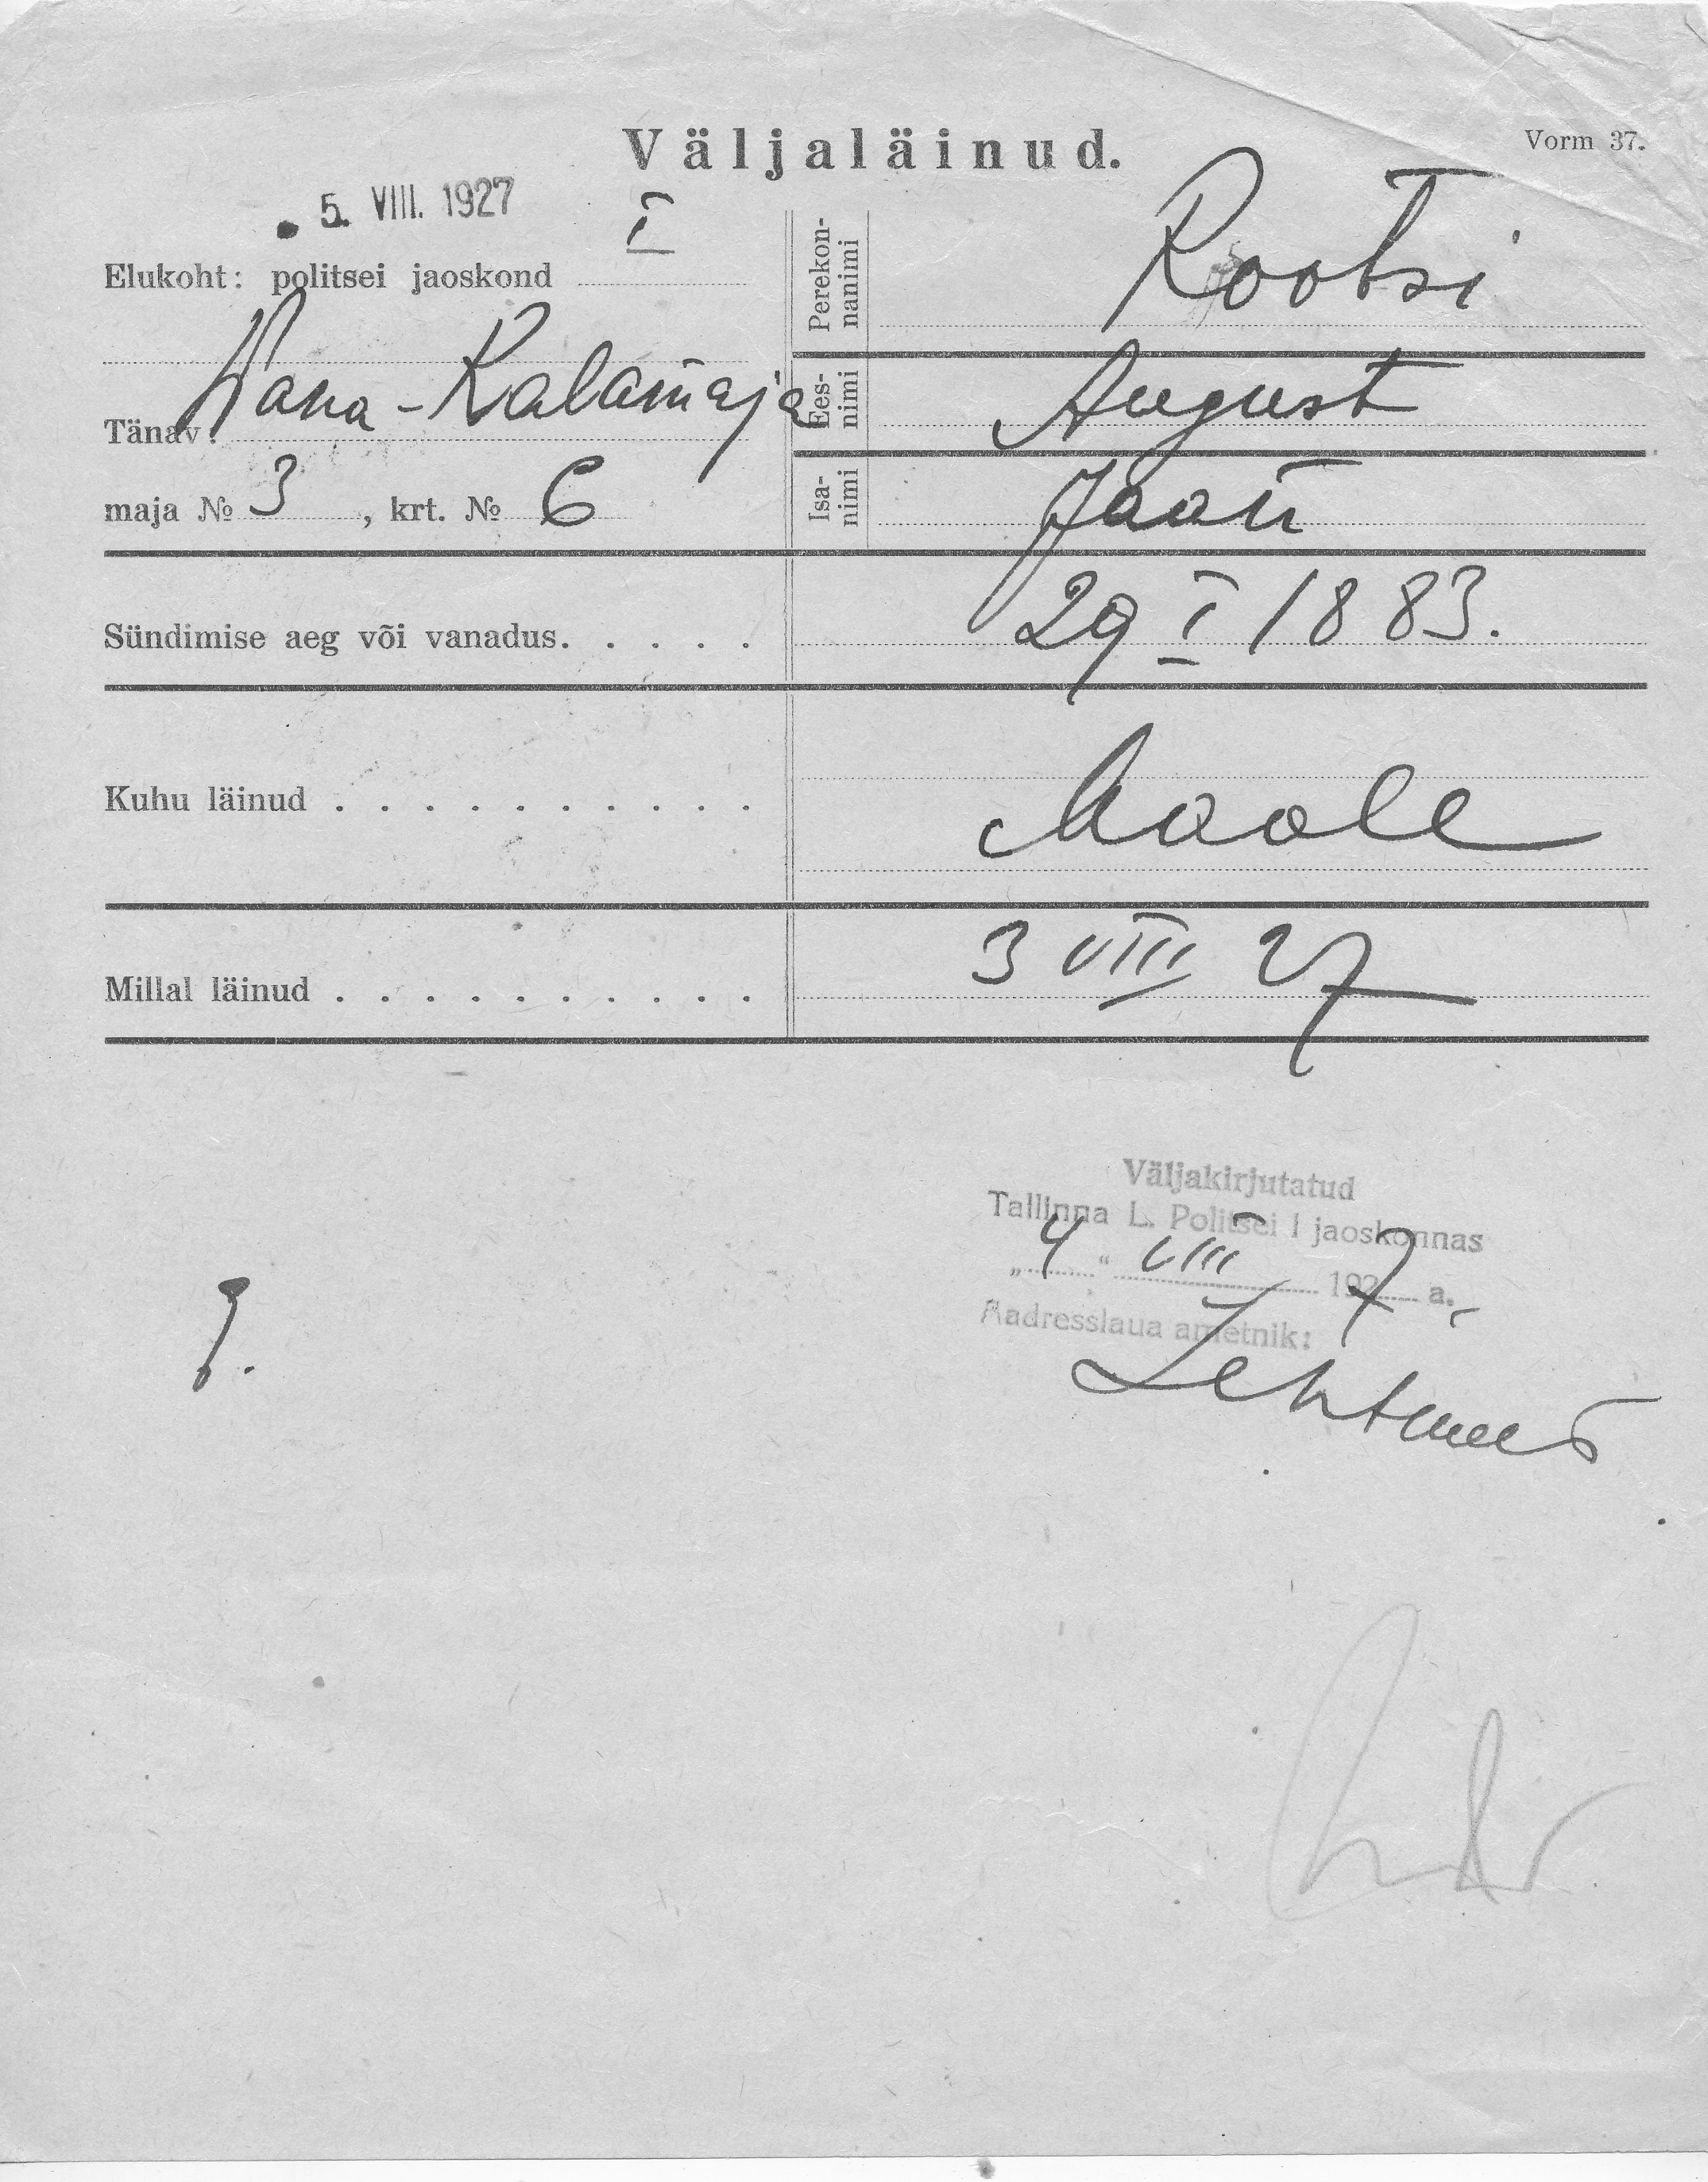 Väljaläinud.
Vorm 37.
5. VIII. 1927
Elukoht: politsei jaoskond I
Tänav: Vana-Kalamaja
maja № 3, krt. № 6
Perekon-
nanimi
Rootsi
Ees-
nimi
August
Isa-
nimi
Jaan
Sündimise aeg või vanadus. . . . . 29 I 1883.
Kuhu läinud . . . . . . . . . . Maale
Millal läinud . . . . . . . . . . 3 VIII 27
Väljakirjutatud
Tallinna L. Politsei I jaoskonnas
„ 4 “ VIII 1927 a.
Aadresslaua ametnik: